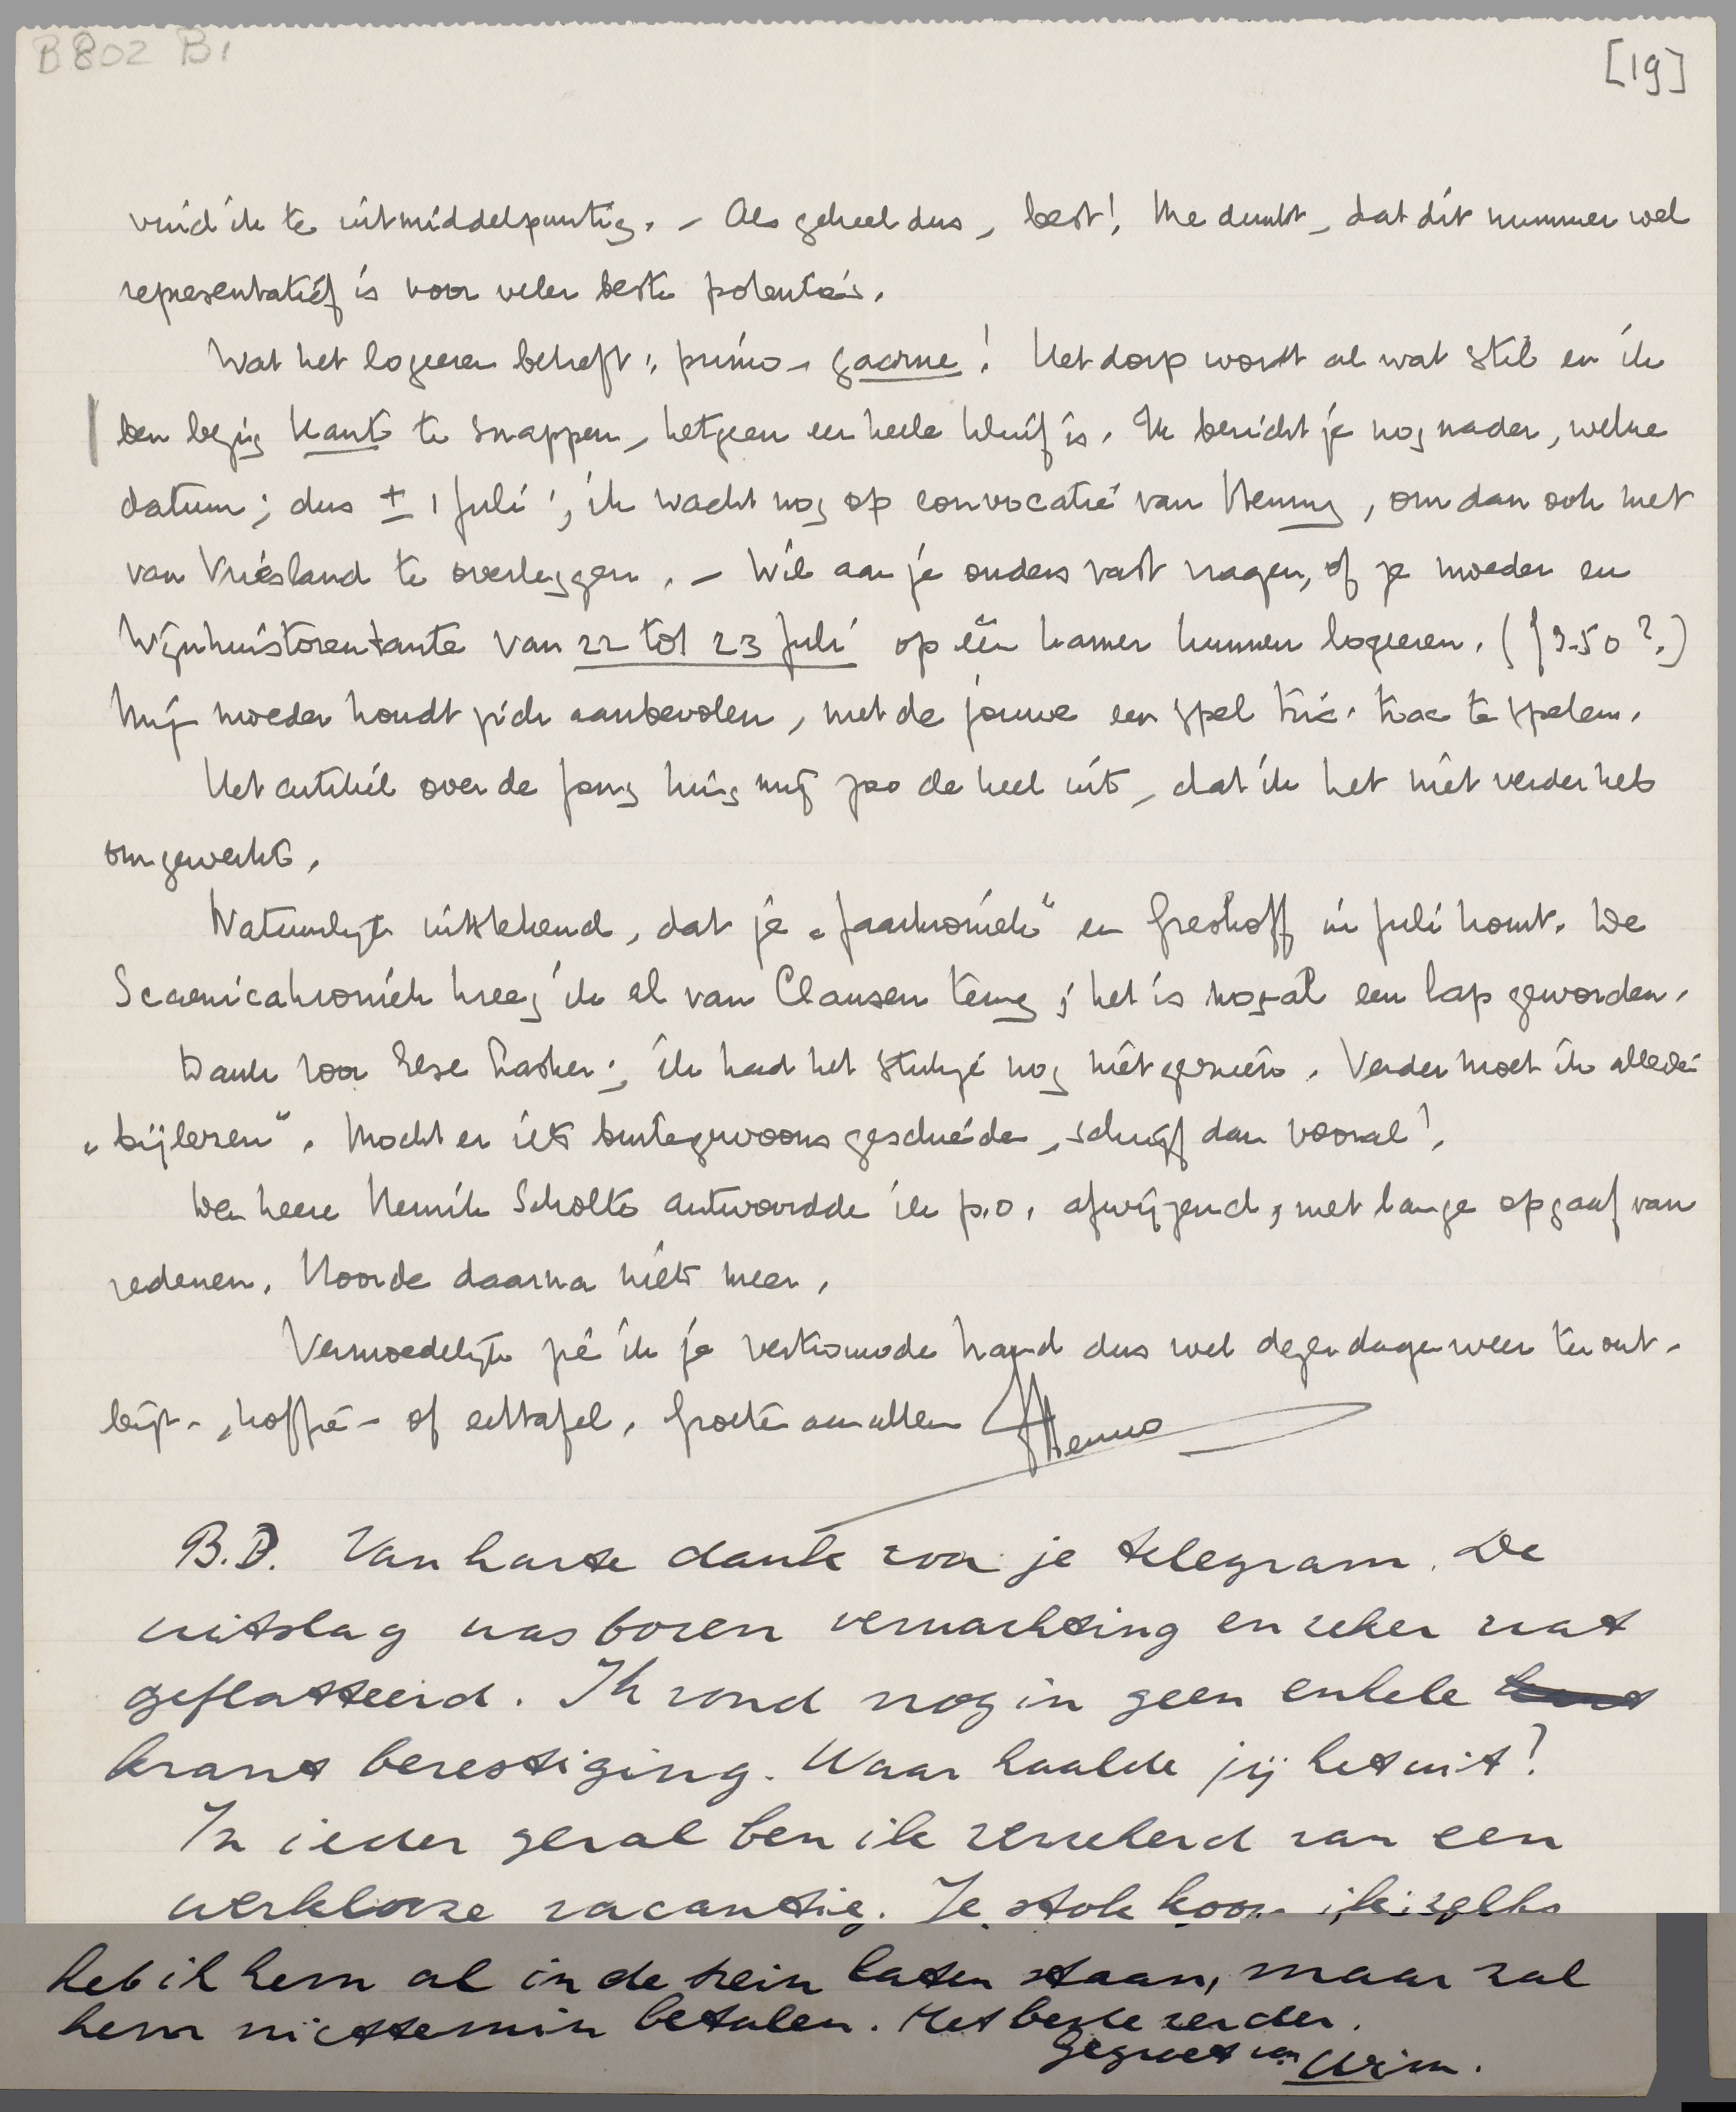 B802 B1
[19]
vind ik te uitmiddelpuntig. – Als geheel dus, best! Me dunkt, dat dit nummer wel
representatief is voor veler beste potenties.
Wat het logeeren betreft: primo, gaarne! Het dorp wordt al wat stil en ik
ben bezig Kant te snappen, hetgeen een heele kluif is. Ik bericht je nog nader, welke
datum; dus ± 1 Juli; ik wacht nog op convocatie van Henny, om dan ook met
van Vriesland te overleggen. – Wil aan je ouders vast vragen, of je moeder en
Wijnhuistorentante van 22 tot 23 Juli op één kamer kunnen logeeren. (f 3.50?)
Mijn moeder houdt zich aanbevolen, met de jouwe een spel tric-trac te spelen.
Het artikel over de Jong hing mij zoo de keel uit, dat ik het niet verder heb
omgewerkt.
Natuurlijk uitstekend, dat je „Jaarkroniek" en Greshoff in Juli komt. De
Scaenicakroniek kreeg ik al van Clausen terug; het is nogal een lap geworden.
Dank voor Else Lasker; ik had het stukje nog niet gezien. Verder moet ik allerlei
„bijlezen". Mocht er iets buitengewoons geschieden, schrijf dan vooral!
Den heere Henrik Scholte antwoordde ik p.o. afwijzend, met lange opgaaf van
redenen. Hoorde daarna niets meer.
Vermoedelijk zie ik je verkomde hand dus wel dezer dagen weer ter ont-
bijt-, koffie- of eettafel. Groeten aan allen
Menno
B.D. Van harte dank voor je telegram. De
uitslag was boven verwachting en zeker wat
geflatteerd. Ik vond nog in geen enkele
krant bevestiging. Waar haalde jij het uit?
In ieder geval ben ik verzekerd van een
werklooze vacantie. Je stok
heb ik hem al in de trein laten staan, maar zal
hem niettemin betalen. Het beste verder.
Gegroet van Wim.